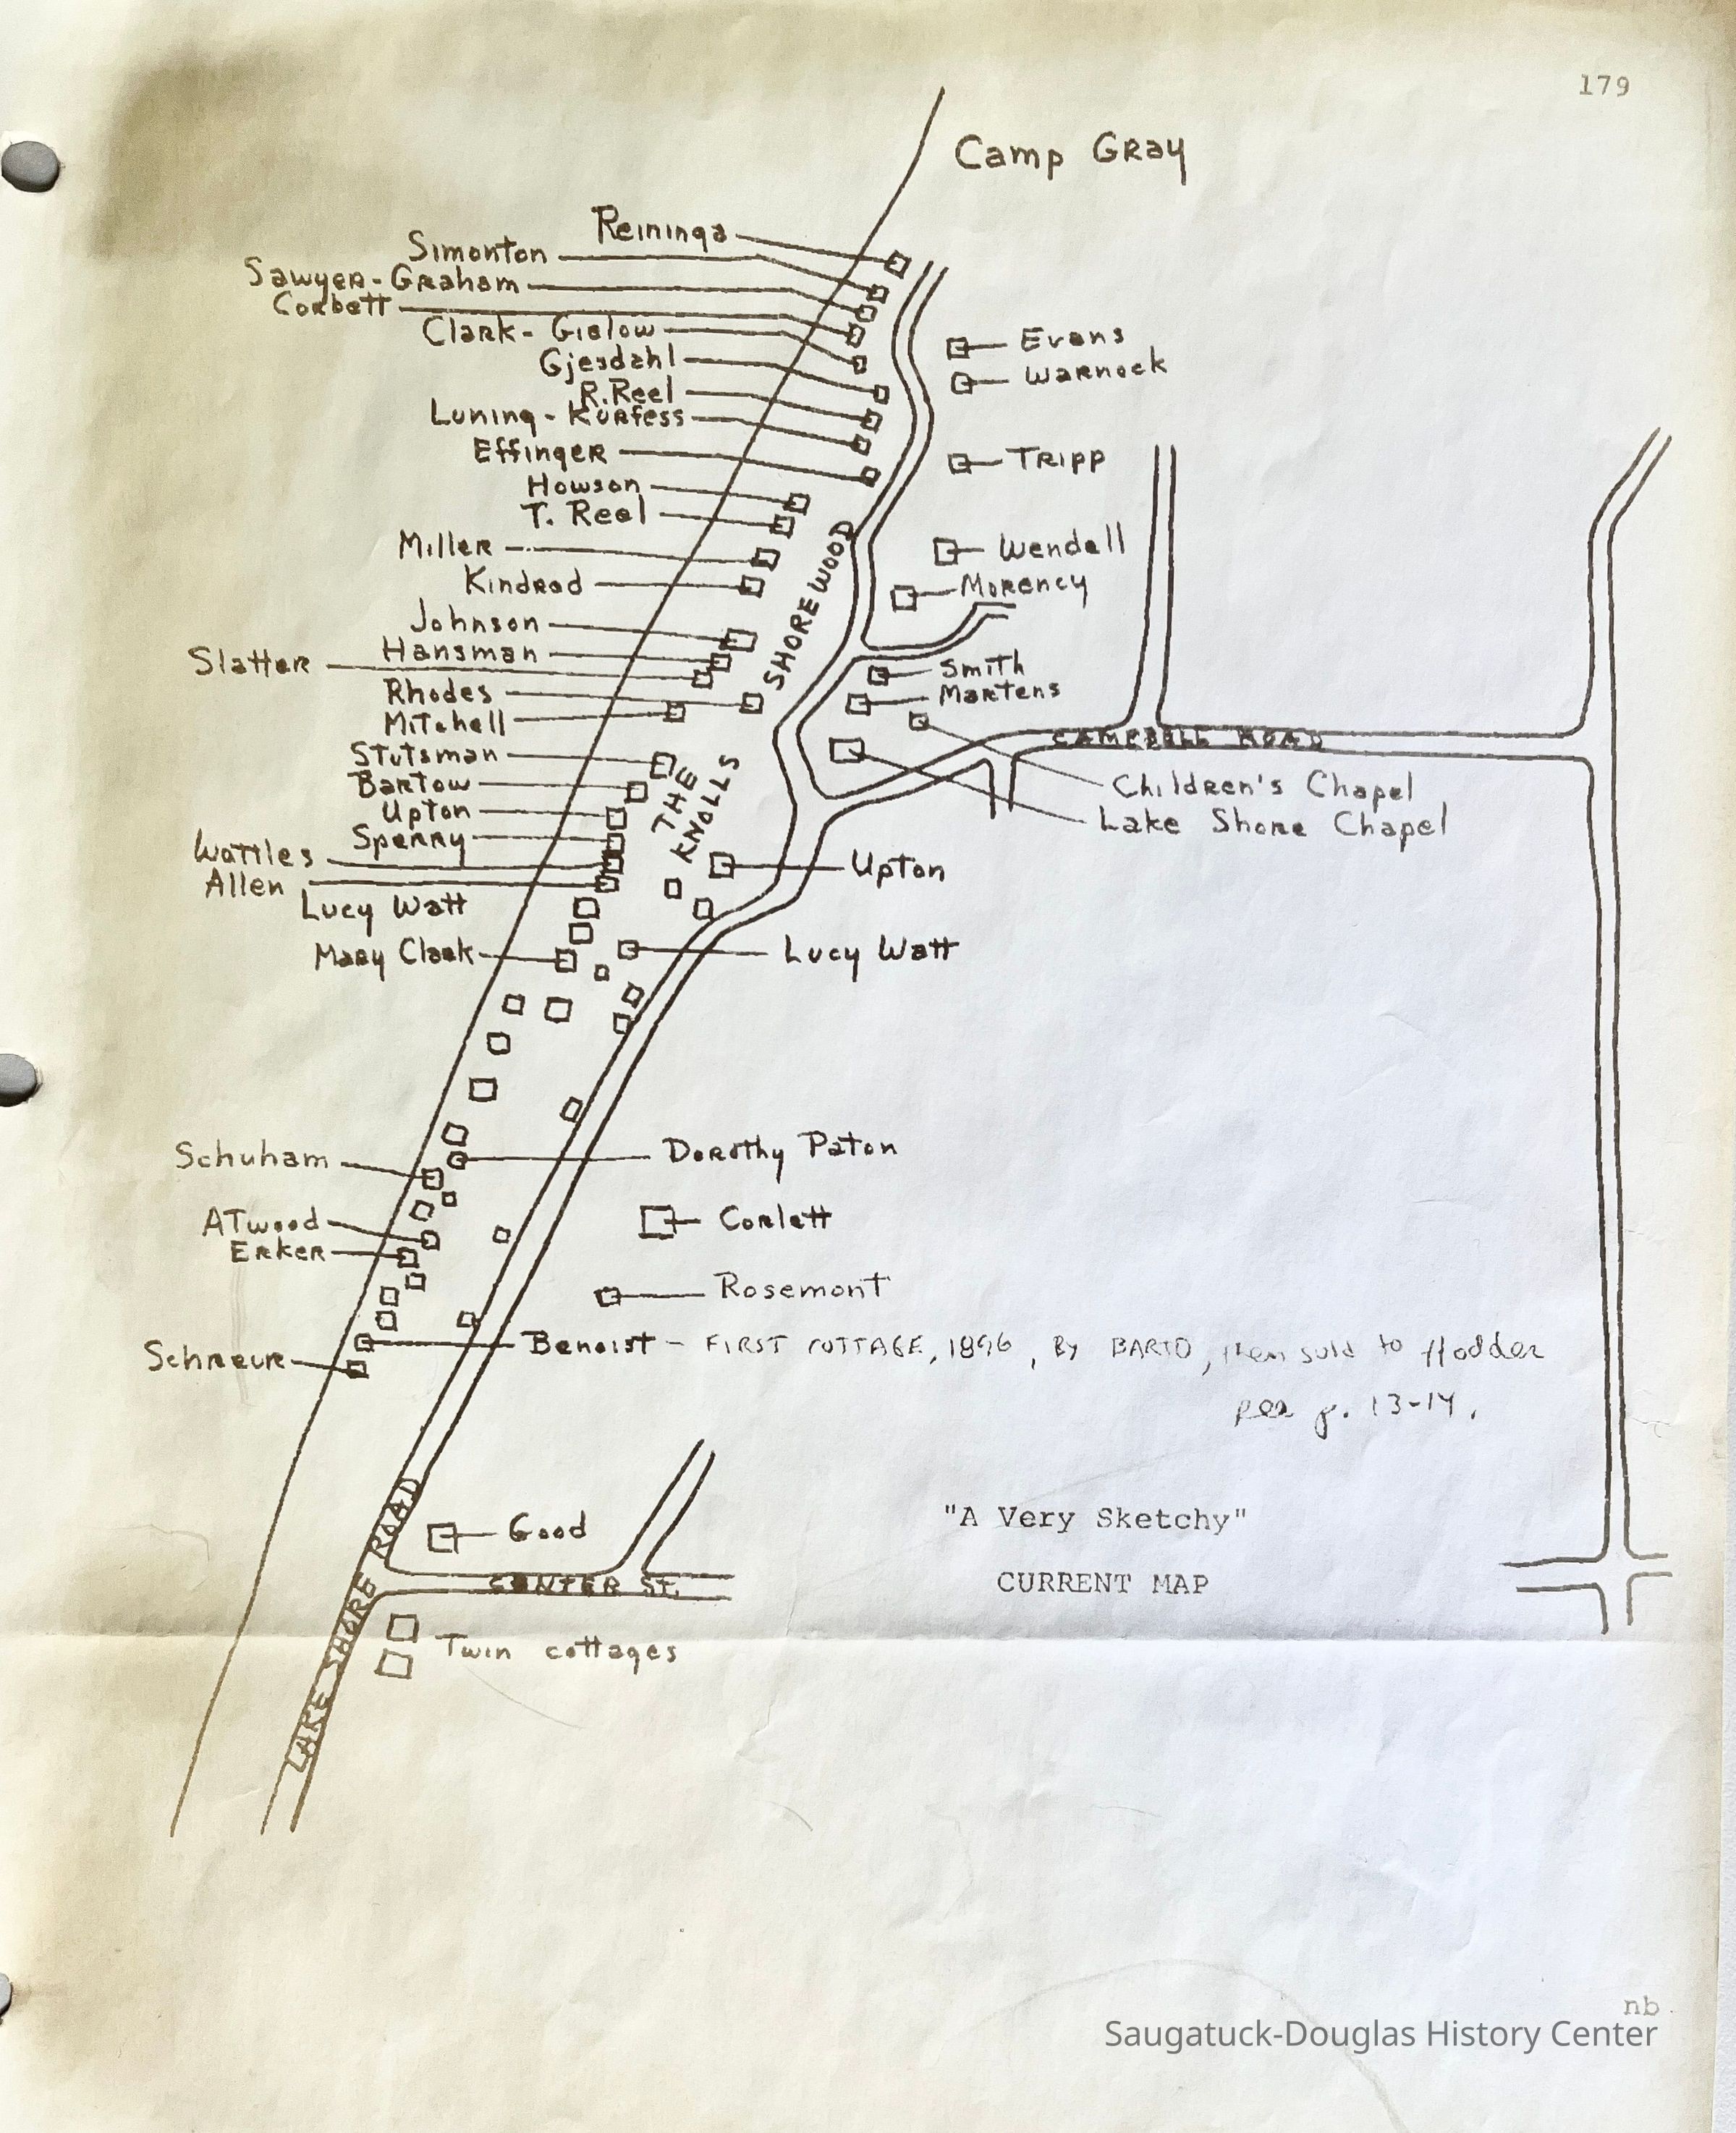 179
Camp Gray
Reininga
Simonton
Sawyer-Graham
Corbett
Clark-Gislow
Evans
Gjesdahl
Warnock
R. Reel
Luning-Kurfess
Effinger
Tripp
Howson
T. Reel
SHOREWOOD
Miller
Wendell
Kindred
Morency
Johnson
Hansman
Slatter
Smith
Rhodes
Martens
Mitchell
CAMPBELL ROAD
Stutsman
Bartow
Children's Chapel
THE
KNOLLS
Upton
Lake Shore Chapel
Sperry
Wattles
Upton
Allen
Lucy Watt
Mary Clark
Lucy Watt
Dorothy Paton
Schuham
Atwood
Corlett
Erker
Rosemont
Benoist - FIRST COTTAGE, 1896, By BARTO, then sold to Hodder
Schreur
p. 13-14.
LAKE SHORE ROAD
"A Very Sketchy"
Good
CURRENT MAP
CENTER ST.
Twin cottages
nb
Saugatuck-Douglas History Center